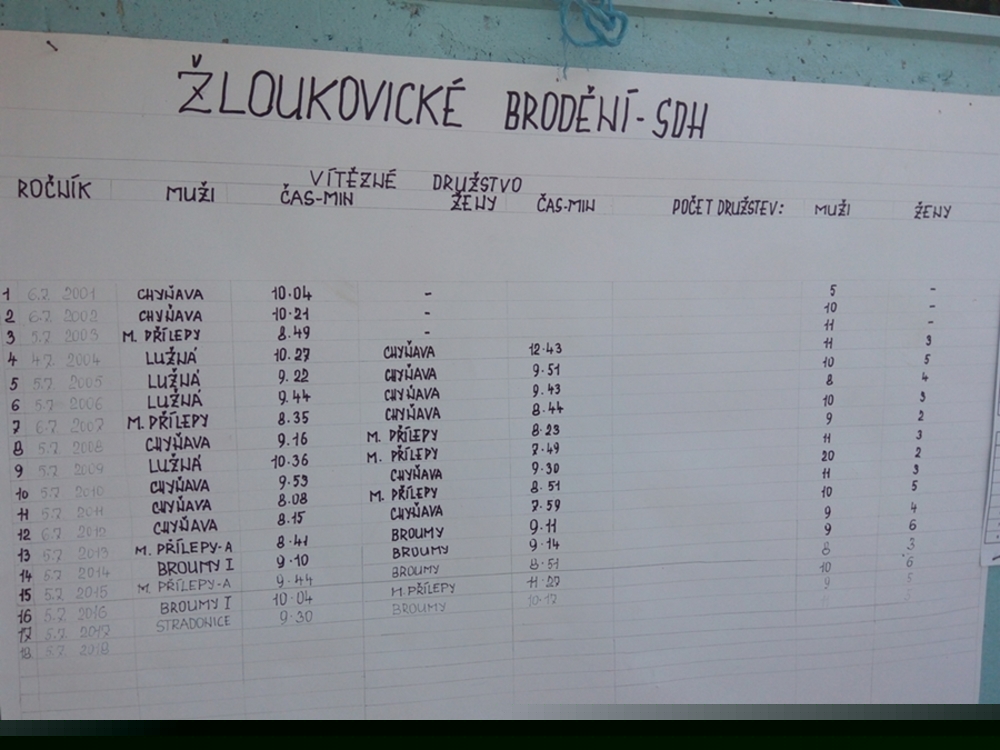 ŽLOUKOVICKÉ BRODĚNÍ - SDH
VÍTĚZNÉ DRUŽSTVO
ROČNÍK MUŽI ČAS-MIN ŽENY ČAS-MIN POČET DRUŽSTEV: MUŽI ŽENY
1 6.7. 2001 CHYŇAVA 10.04 - 5 -
2 6.7. 2002 CHYŇAVA 10.21 - 10 -
3 5.7. 2003 M. PŘÍLEPY 8.49 - 11 -
4 4.7. 2004 LUŽNÁ 10.27 CHYŇAVA 12.43 11 3
5 5.7. 2005 LUŽNÁ 9.22 CHYŇAVA 9.51 10 5
6 5.7. 2006 LUŽNÁ 9.44 CHYŇAVA 9.43 8 4
7 6.7. 2007 M. PŘÍLEPY 8.35 CHYŇAVA 8.44 10 3
8 5.7. 2008 CHYŇAVA 9.16 M. PŘÍLEPY 8.23 9 2
9 5.7. 2009 LUŽNÁ 10.36 M. PŘÍLEPY 7.49 11 3
10 5.7. 2010 CHYŇAVA 9.53 CHYŇAVA 9.30 20 2
11 5.7. 2011 CHYŇAVA 8.08 M. PŘÍLEPY 8.51 11 3
12 6.7. 2012 CHYŇAVA 8.15 CHYŇAVA 7.59 10 5
13 5.7. 2013 M. PŘÍLEPY-A 8.41 BROUMY 9.11 9 4
14 5.7. 2014 BROUMY I 9.10 BROUMY 9.14 9 6
15 5.7. 2015 M. PŘÍLEPY-A 9.44 BROUMY 8.51 8 3
16 5.7. 2016 BROUMY I 10.04 M. PŘÍLEPY 11.27 10 6
17 5.7. 2017 STRADONICE 9.30 BROUMY 10.17 9 5
18 5.7. 2018